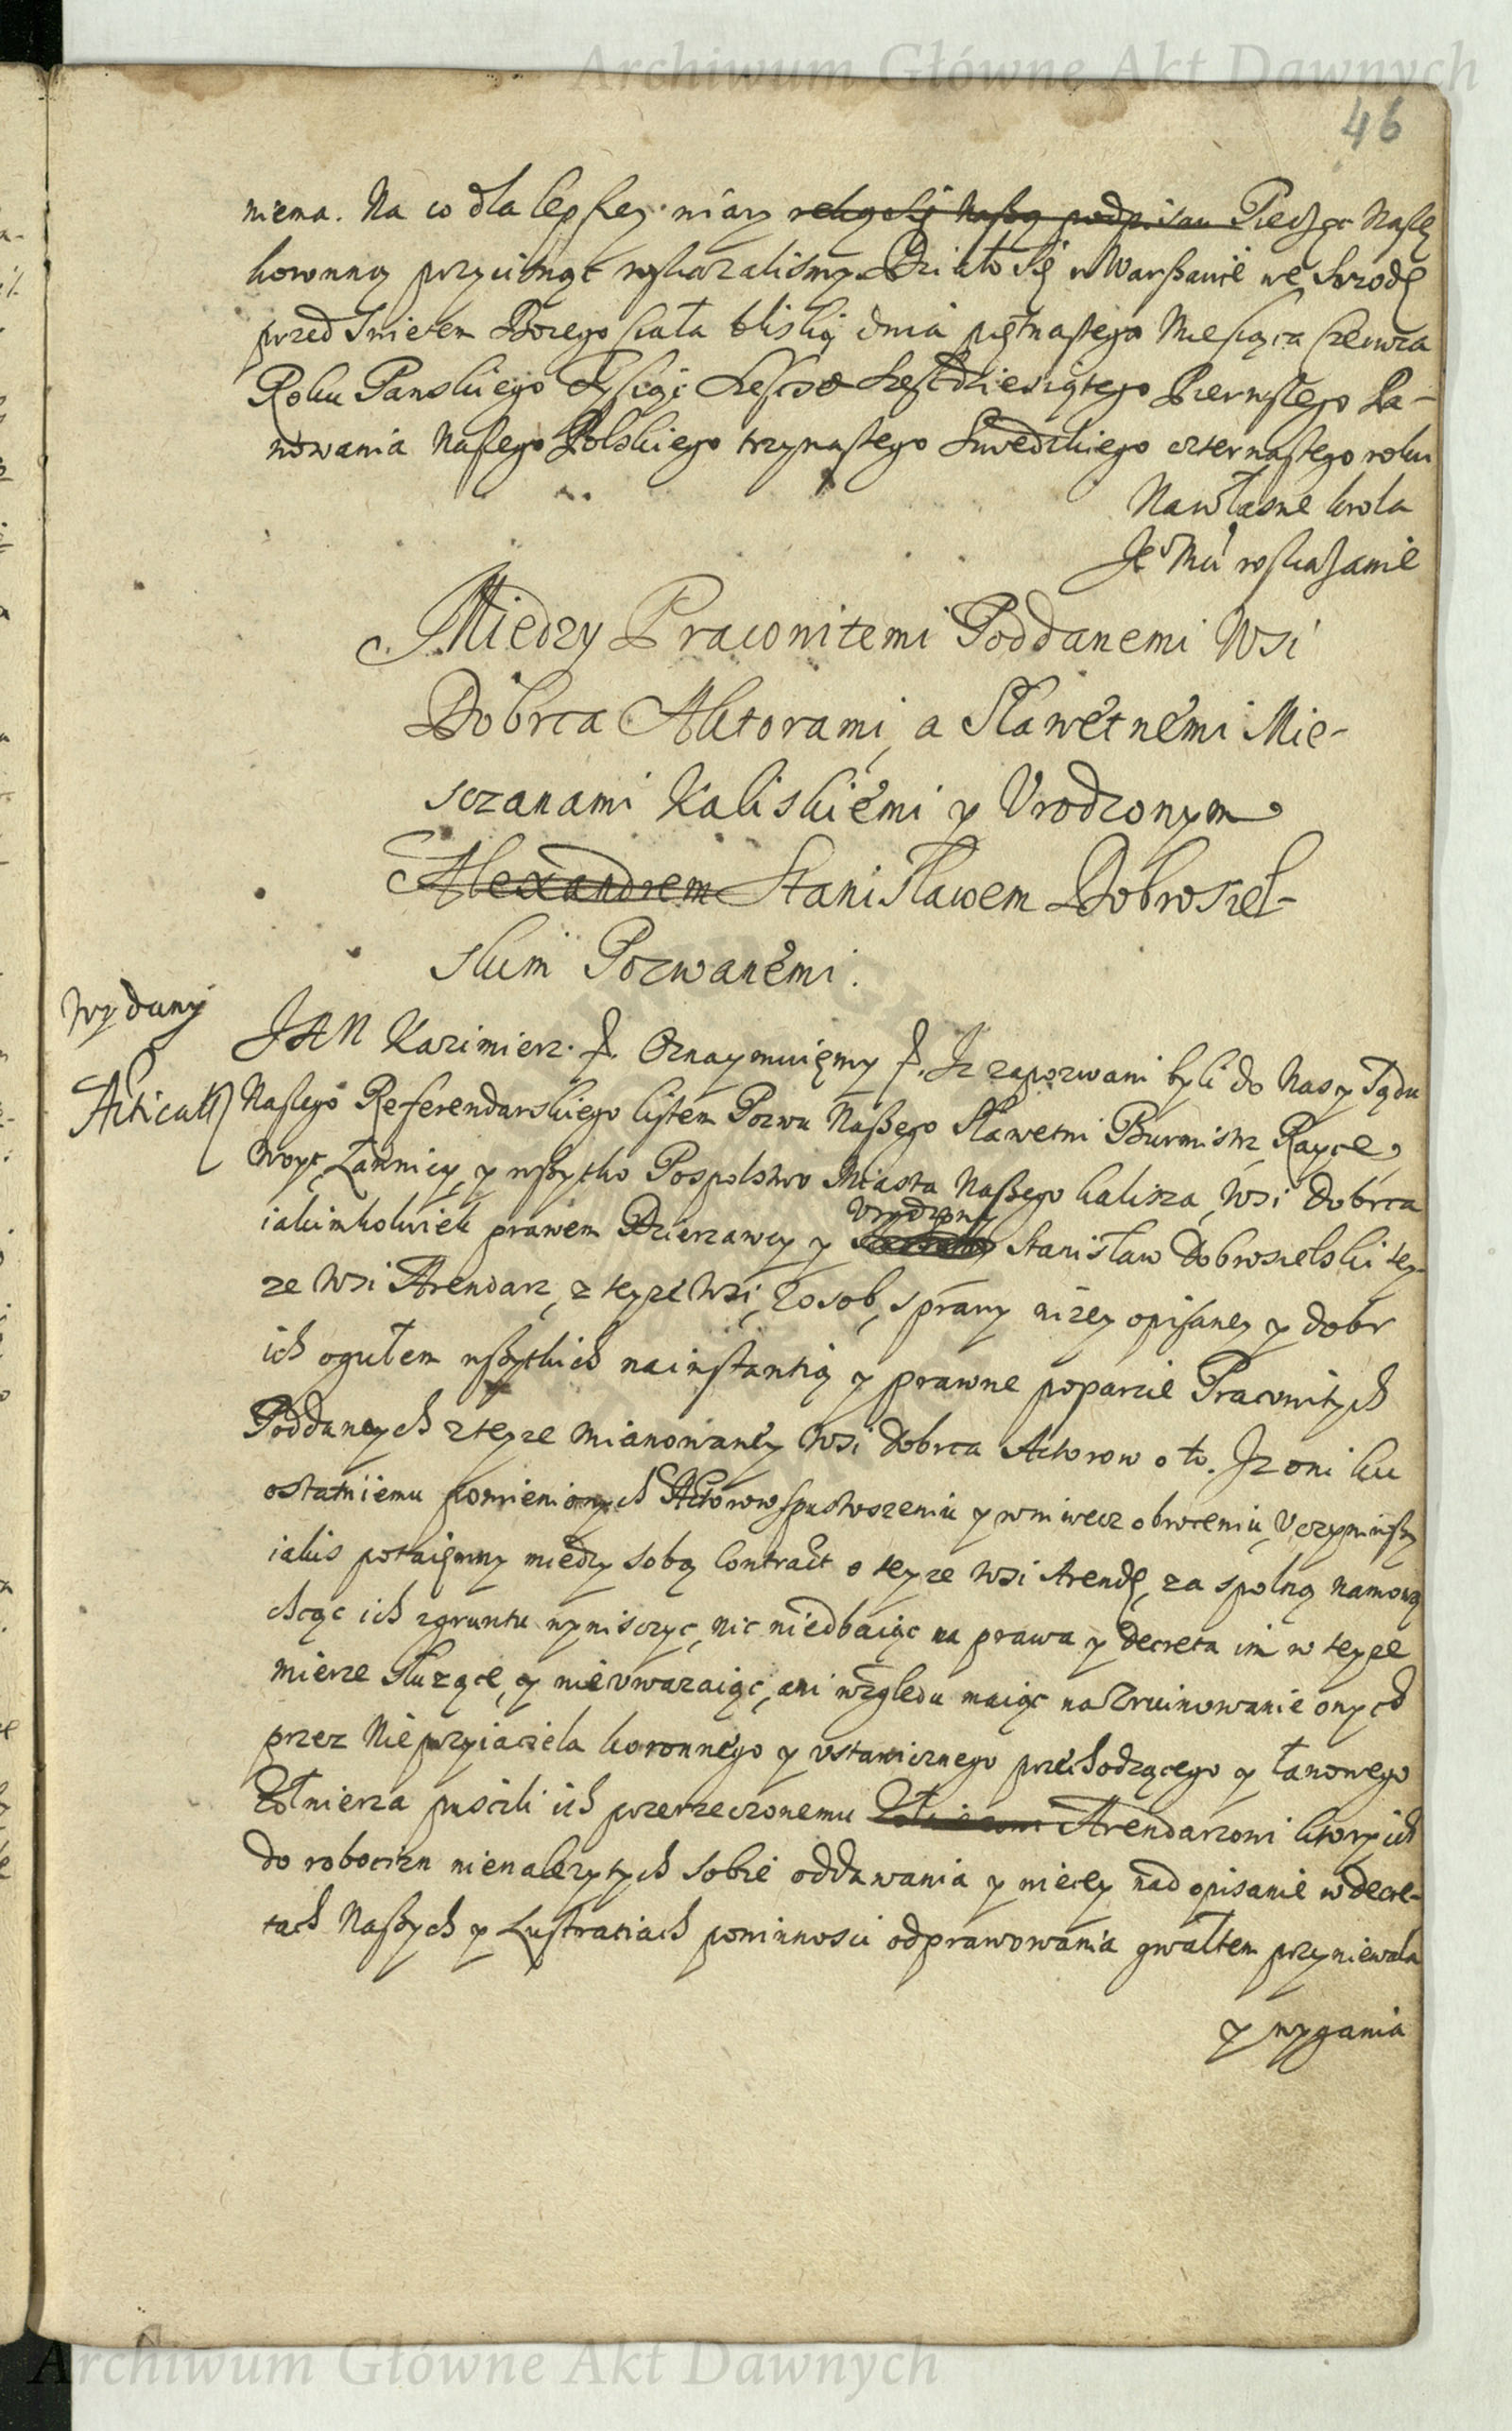 Archiwum Główne Akt Dawnych
46
niema. Na co dla lepszey wiary ręką się Naszą podpisau Pieczęc Naszę
koronną przycisnąc rozkazalismy. Działo się w Warszawie we Srzodę
przed Swietem Bozego Ciała bliską dnia piętnastego Miesiąca Czerwca
Roku Panskiego Tysiąc Szescset Szescdziesiątego Pierwszego Pa-
nowania Naszego Polskiego trzynastego Swedzkiego czternastego roku
Na własne krola
Je° Mci roskazanie
Miedzy Pracowitemi Poddanemi Wsi
Dobrca Aktorami, a Sławetnemi Mie-
sczanami Kaliskiemi y Vrodzonym
Alexandrem Stanisławem Dobrosiel-
skim Pozwanemi.
Wydany
JAN Kazimierz. Oznaymuięmy. Iz zapozwani byli do Nas y Sądu
Naszego Referendarskiego listem Pozwu Naszego Sławetni Burmistrz Rayce,
Woyt, Ławnicy, y wszytko Pospolstwo Miasta Naszego Kalisza, Wsi Dobrca
Vrodzony
iakimkolwiek prawem Dzierzawcy y Stanisław Dobrosielski tey-
ze Wsi Arendarz, z teyze Wsi, z osob, sprawy nizey opisaney y dobr
ich ogułem wszytkich na instantią y prawne poparcie Pracowitych
Poddanych z teyze mianowaney Wsi Dobrca Aktorow o to. Iz oni ku
ostatniemu pomienionych Aktorow spustoszeniu y wniwecz obroceniu, Vczyniwszy
iakis potaięmny miedzy sobą Contract o teyze Wsi Arendę, za spolną namową
chcąc ich zgruntu wyniszczyc, nic niedbaiąc na prawa y Decreta im w teyze
mierze słuzące, y nieuwazaiąc, ani względu maiąc na Zruinowanie onych
przez Nieprzyiaciela koronnego y vstawicznego przechodzącego y łanowego
Zołnierza puscili ich przerzeczonemu Arendarzowi ktory ich
do robocizn nienalezytych sobie oddawania y wiecey nad opisanie w Decre-
tach Naszych y Lustratiach powinnosci odprawowania gwałtem przyniewala
y wygania
Archiwum Główne Akt Dawnych